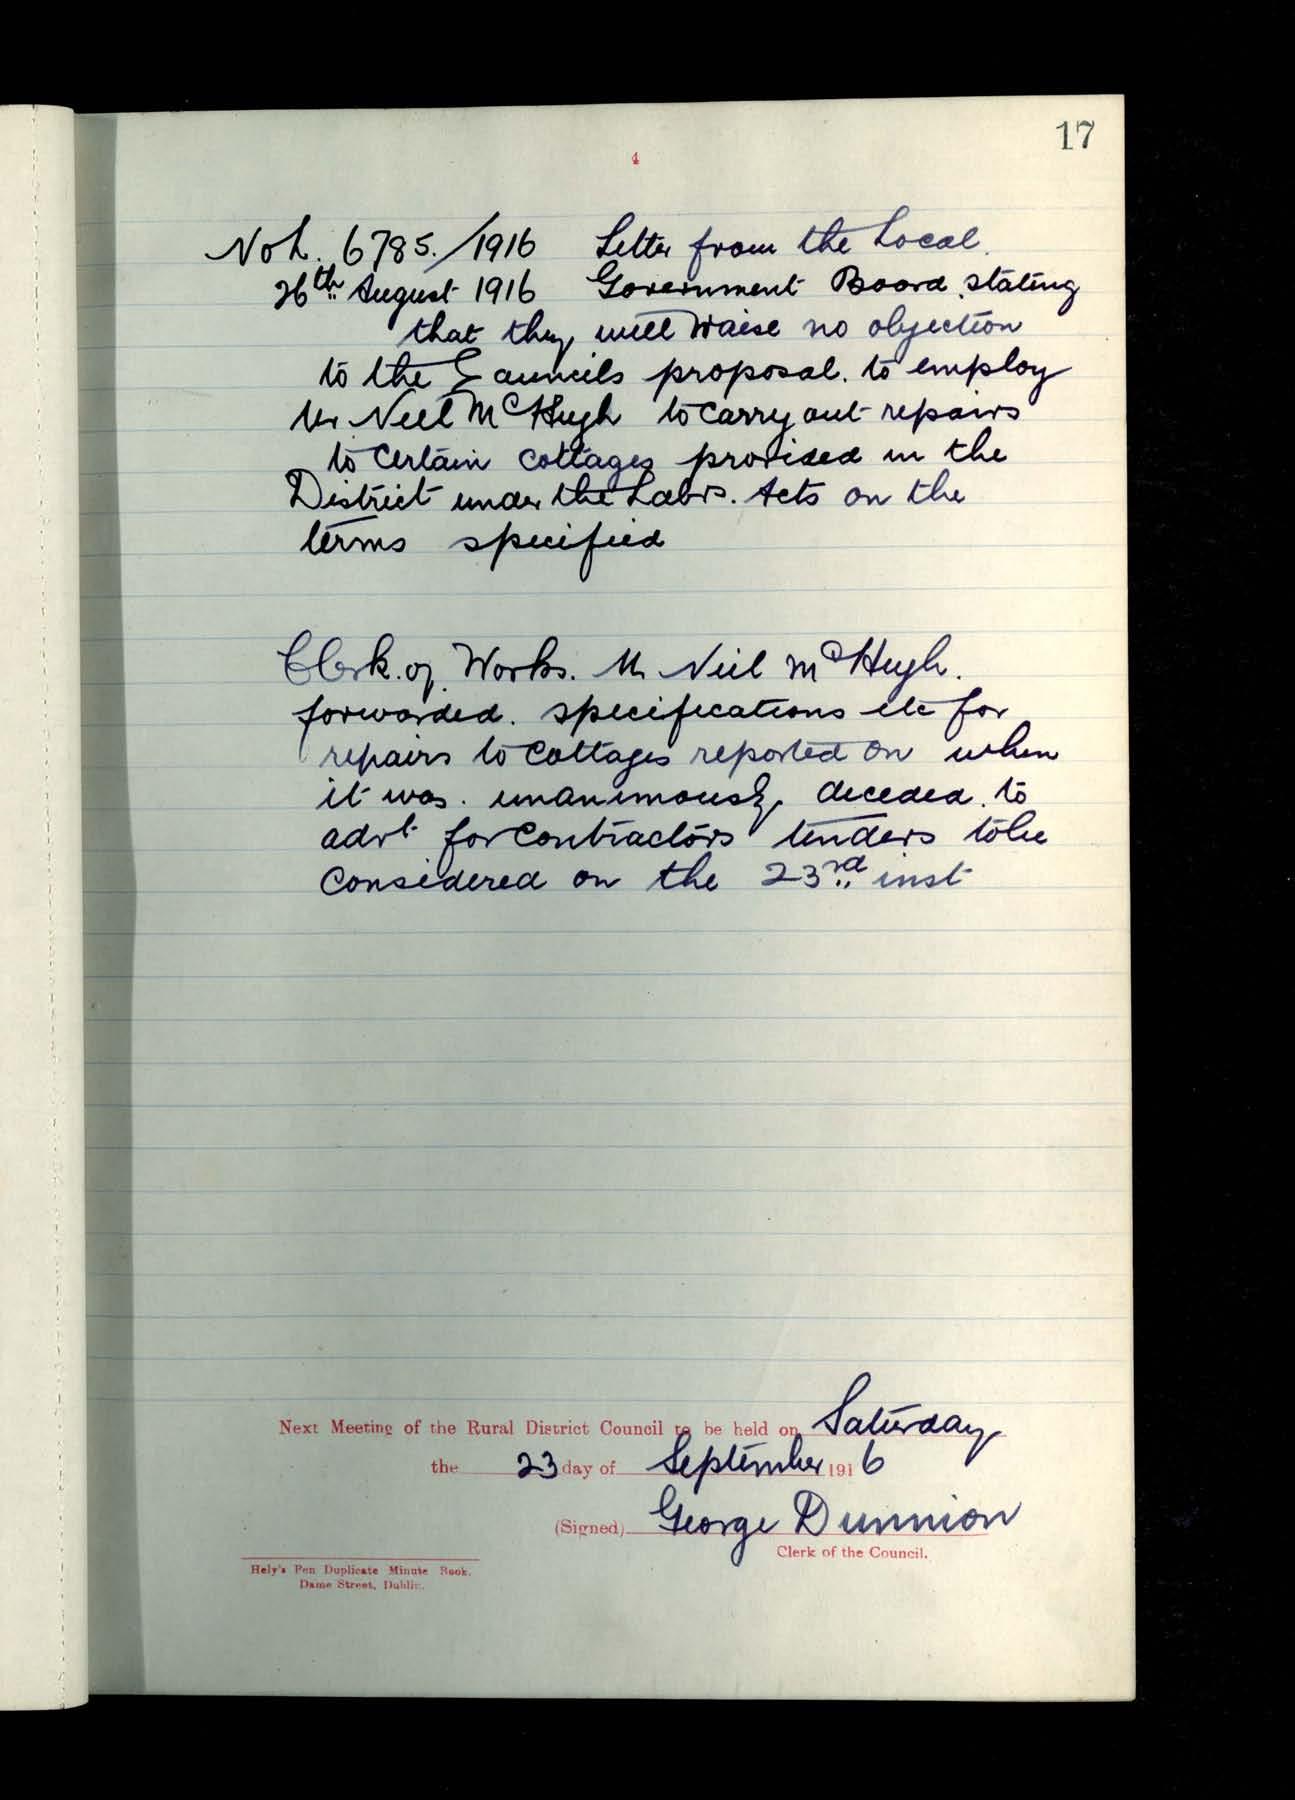 17
4
No L. 6785./1916 Letter from the Local
26th August 1916 Government Board stating
that they will raise no objection
to the Councils proposal. to employ
Mr Neil McHugh to carry out repairs
to certain cottages provided in the
District under the Labrs. Acts on the
terms specified
Clerk of Works. Mr Neil McHugh.
forwarded. specifications etc for
repairs to cottages reported on when
it was. unanimously decided. to
advt for contractors tenders to be
considered on the 23rd inst
Next Meeting of the Rural District Council to be held on Saturday
the 23 day of September 1916
(Signed) George Dunnion
Clerk of the Council.
Hely's Pen Duplicate Minute Book.
Dame Street, Dublin.